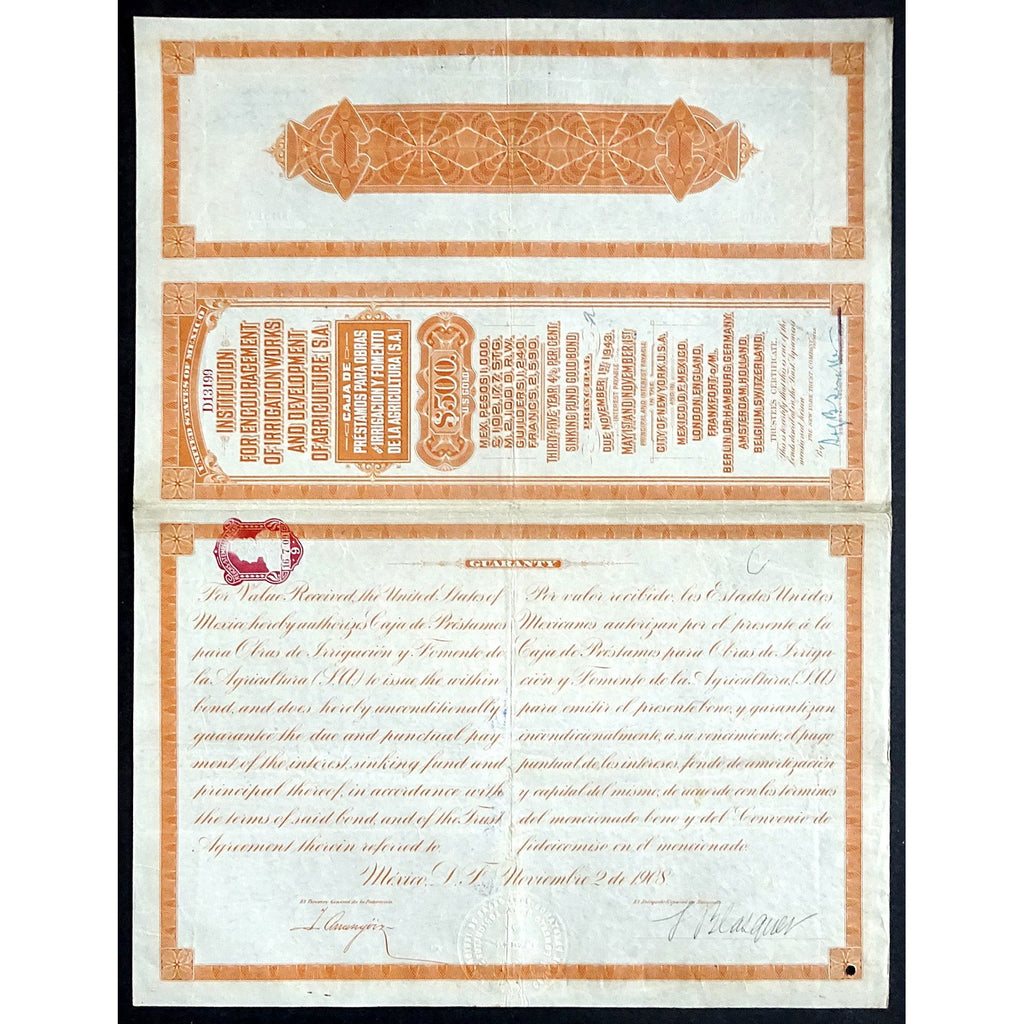 UNITED STATES OF MEXICO
D13199
INSTITUTION
FOR ENCOURAGEMENT
OF IRRIGATION WORKS
AND DEVELOPMENT
OF AGRICULTURE (S.A.)
CAJA DE
PRESTAMOS PARA OBRAS
DE IRRIGACION Y FOMENTO
DE LA AGRICULTURA (S.A.)
$500.
U.S. GOLD
MEX. PESOS 1,000.
£ 102.17.7 STG.
M. 2,100 D.R.W.
GUILDERS 1,240.
FRANCS 2,590.
THIRTY-FIVE YEAR 4½ PER CENT.
SINKING FUND GOLD BOND
PRINCIPAL
DUE NOVEMBER 1ST 1943.
INTEREST PAYABLE
MAY 1ST AND NOVEMBER 1ST
PRINCIPAL AND INTEREST PAYABLE
IN THE
CITY OF NEW YORK U.S.A.
MEXICO CITY, MEXICO.
LONDON, ENGLAND.
FRANKFORT o/M.
BERLIN, OR HAMBURG, GERMANY.
AMSTERDAM, HOLLAND.
BELGIUM, SWITZERLAND.
TRUSTEE'S CERTIFICATE.
This is to certify that this is one of the
bonds described in the Trust Agreement
mentioned therein
THE NEW YORK TRUST COMPANY
By
GUARANTY
For Value Received, the United States of
Mexico hereby authorizes Caja de Préstamos
para Obras de Irrigación y Fomento de
la Agricultura (S.A.) to issue the within
bond, and does hereby unconditionally
guarantee the due and punctual pay
ment of the interest, sinking fund and
principal thereof, in accordance with
the terms of said bond, and of the Trust
Agreement therein referred to.
Por valor recibido, los Estados Unidos
Mexicanos autorizan por el presente á la
Caja de Préstamos para Obras de Irriga-
ción y Fomento de la Agricultura, (S.A.)
para emitir el presente bono, y garantizan
incondicionalmente, á su vencimiento, el pago
puntual de los intereses, fondo de amortización
y capital del mismo, de acuerdo con los términos
del mencionado bono y del Convenio de
fideicomiso en él mencionado.
México, D. F. Noviembre 2 de 1908.
El Tesorero General de la Federación